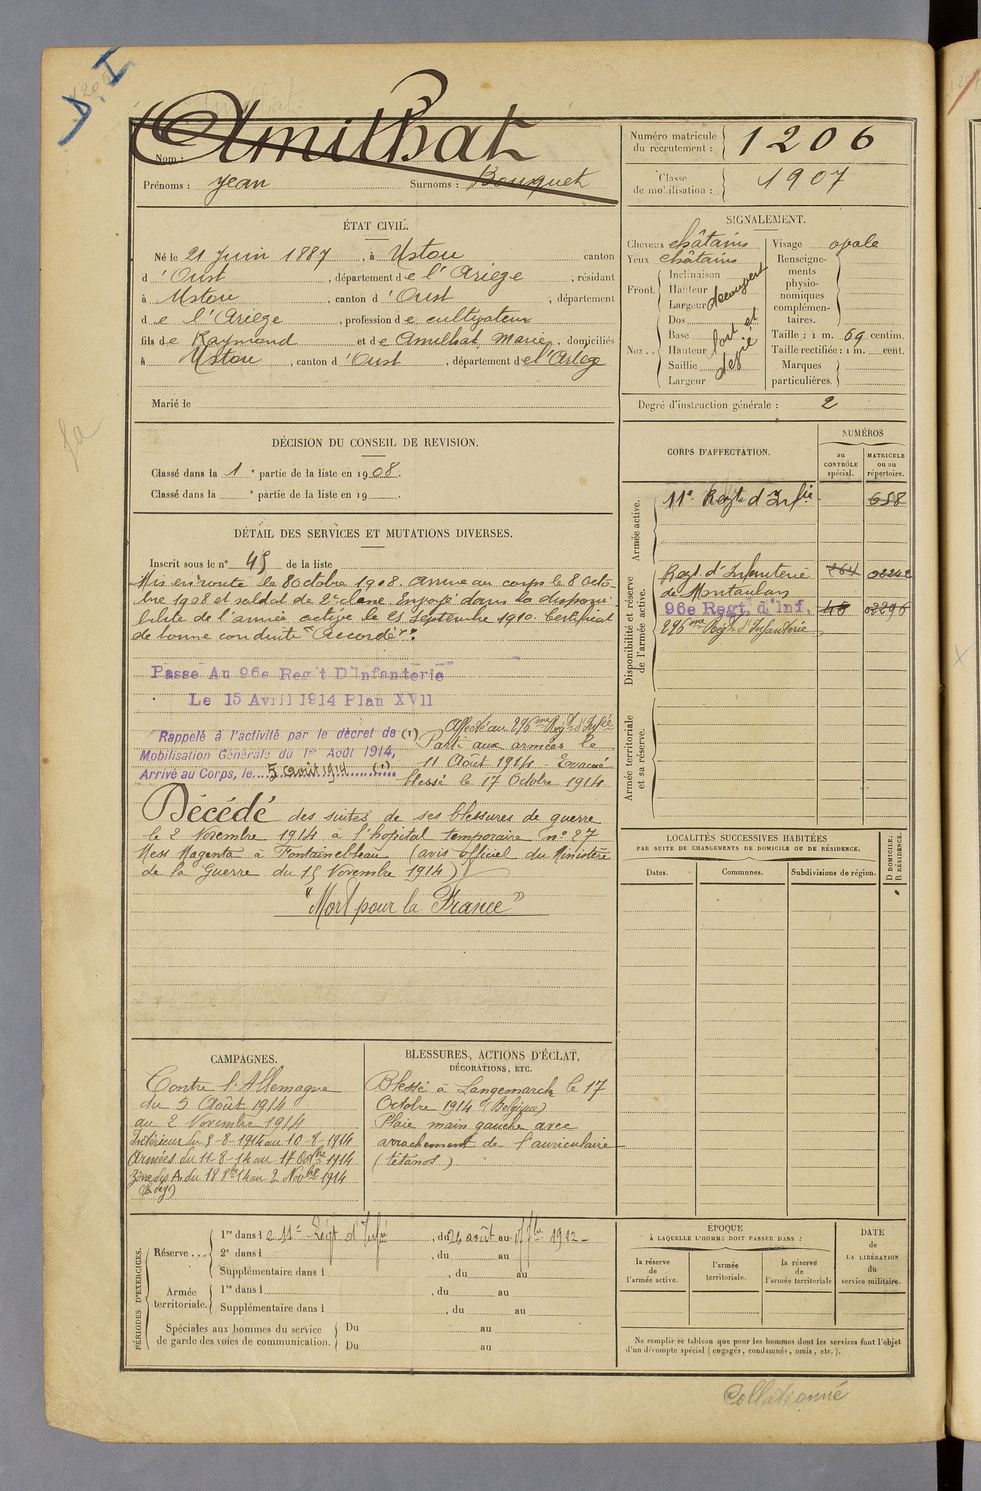 D. I
1206
Nom : Amilhat
Prénoms : Jean Surnoms : Bousquet
Numéro matricule du recrutement : 1206
Classe de mobilisation : 1907
ÉTAT CIVIL.
Né le 21 Juin 1887, à Ustou canton
d'Oust, département de l'Ariège, résidant
à Ustou, canton d'Oust, département
de l'Ariège, profession de cultivateur
fils de Raymond et de Amilhat Marie, domiciliés
à Ustou, canton d'Oust, département de l'Ariège
Marié le
SIGNALEMENT.
Cheveux châtains
Yeux châtains
Front. Inclinaison Hauteur Largeur découvert
Nez.. Dos Base Hauteur Saillie Largeur fort et
Visage ovale
Renseignements physionomiques complémentaires.
Taille : 1 m. 69 centim.
Taille rectifiée : 1 m. cent.
Marques particulières.
Degré d'instruction générale : 2
DÉCISION DU CONSEIL DE REVISION.
Classé dans la 1e partie de la liste en 1908.
Classé dans la e partie de la liste en 19 .
DÉTAIL DES SERVICES ET MUTATIONS DIVERSES.
Inscrit sous le n° 45 de la liste
Mis en route le 8 Octobre 1908. Arrivé au corps le 8 Octo-
bre 1908 et soldat de 2e classe. Envoyé dans la disponi
bilité de l'armée active le 25 Septembre 1910. Certificat
de bonne conduite "Accordé".
Passé Au 96e Reg't D'Infanterie
Le 15 Avril 1914 Plan XVII
Rappelé à l'activité par le décret de
Mobilisation Générale du 1er Août 1914,
Arrivé au Corps, le 5 août 1914 (1)
(1) Affecté au 296me Régt d'Infie
Parti aux armées le
11 Août 1914. Evacué
blessé le 17 Octobre 1914
Décédé des suites de ses blessures de guerre
le 2 Novembre 1914 à l'hopital temporaire n° 27
Mess Magenta à Fontainebleau (avis officiel du Ministère
de la Guerre du 15 Novembre 1914)
"Mort pour la France"
CORPS D'AFFECTATION.
NUMÉROS
au CONTRÔLE spécial.
MATRICULE ou au répertoire.
Armée active.
11e Regt d'Infie 658
Disponibilité et réserve de l'armée active.
Regt d'Infanterie 764 02242
de Montauban
96e Regt d'Inf. 48 02296
296me Régt d'Infanterie
Armée territoriale et sa réserve.
LOCALITÉS SUCCESSIVES HABITÉES
PAR SUITE DE CHANGEMENTS DE DOMICILE OU DE RÉSIDENCE.
Dates. Communes. Subdivisions de région. D DOMICILE. R RÉSIDENCE.
CAMPAGNES.
Contre l'Allemagne
du 5 Août 1914
au 2 Novembre 1914
Intérieur du 5-8-1914 au 10-8-1914
Armées du 11-8-14 au 17 Octbre 1914
Zone des A. du 18 8bre 14 au 2 Novbre 1914
BLESSURES, ACTIONS D'ÉCLAT,
DÉCORATIONS, ETC.
Blessé à Langemarck le 17
Octobre 1914 (Belgique)
Plaie main gauche avec
arrachement de l'auriculaire
(tétanos)
PÉRIODES D'EXERCICES.
Réserve... 1re dans le 11e Régt d'Infie, du 26 août au 1912
2e dans l , du au
Supplémentaire dans l , du au
Armée territoriale. 1re dans l , du au
Supplémentaire dans l , du au
Spéciales aux hommes du service de garde des voies de communication. Du au
Du au
ÉPOQUE
À LAQUELLE L'HOMME DOIT PASSER DANS :
la réserve de l'armée active.
l'armée territoriale.
la réserve de l'armée territoriale
DATE de LA LIBÉRATION du service militaire.
Ne remplir ce tableau que pour les hommes dont les services font l'objet
d'un décompte spécial (engagés, condamnés, omis, etc.).
Collationné